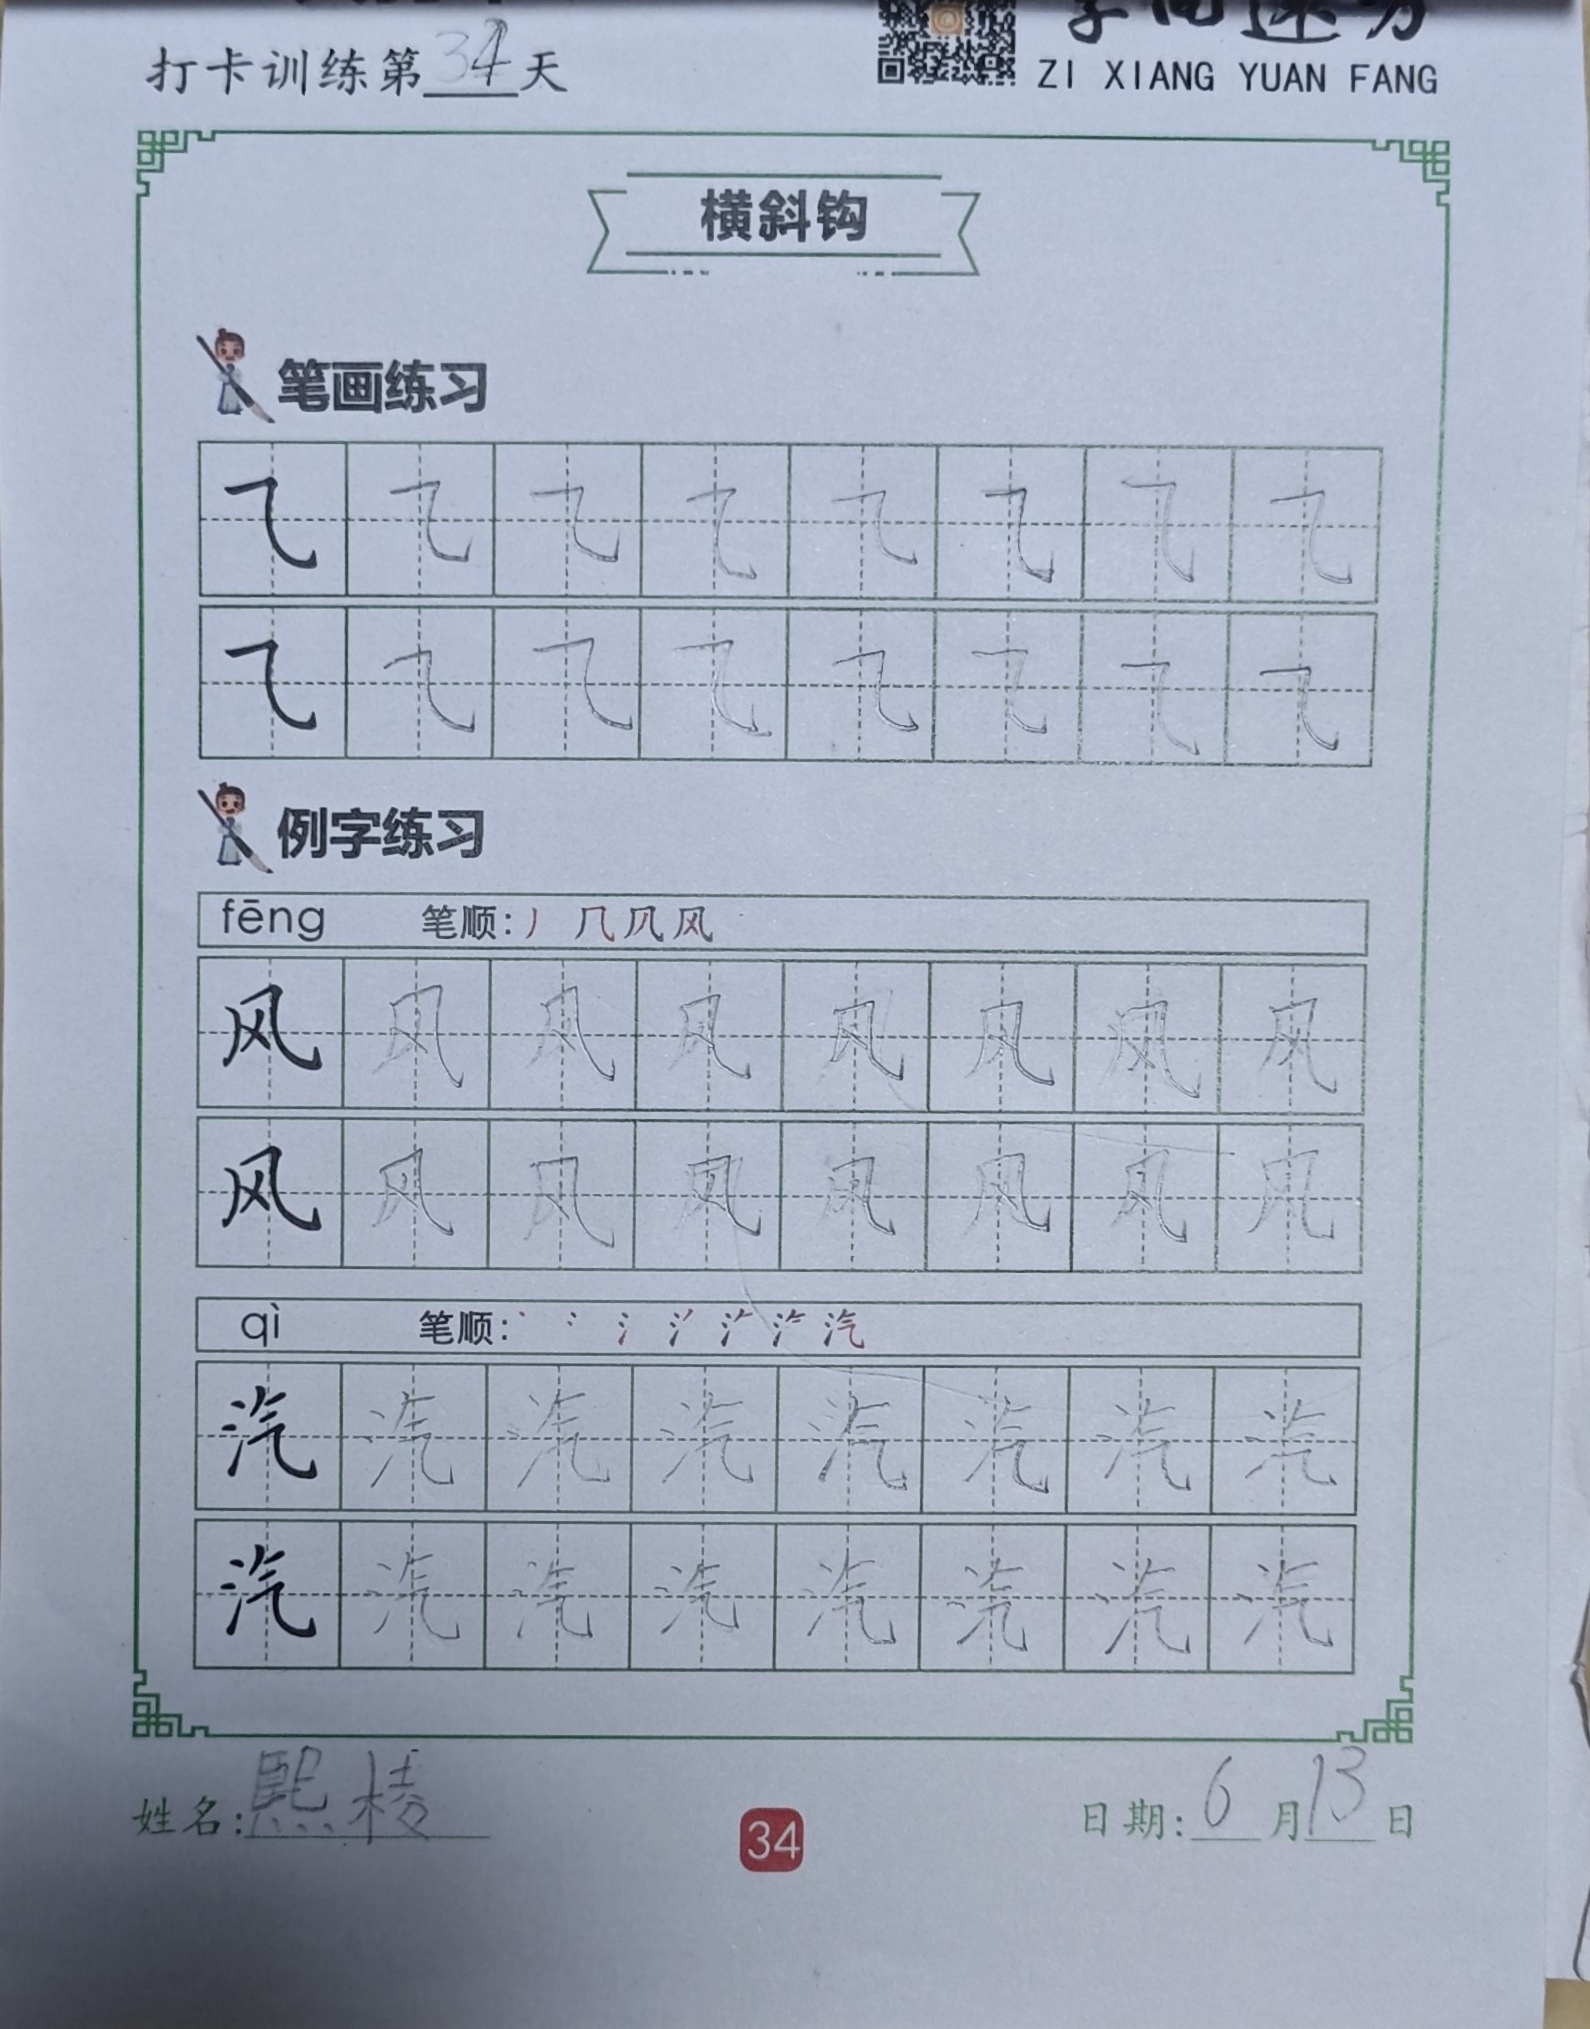 打卡训练第34天
ZI XIANG YUAN FANG
横斜钩
笔画练习
㇈ ㇈ ㇈ ㇈ ㇈ ㇈ ㇈ ㇈
㇈ ㇈ ㇈ ㇈ ㇈ ㇈ ㇈ ㇈
例字练习
fēng 笔顺: 丿 几 凤 风
风 风 风 风 风 风 风 风
风 风 风 风 风 风 风 风
qì 笔顺: 汽
汽 汽 汽 汽 汽 汽 汽 汽
汽 汽 汽 汽 汽 汽 汽 汽
姓名: 熙棱
34
日期: 6月13日